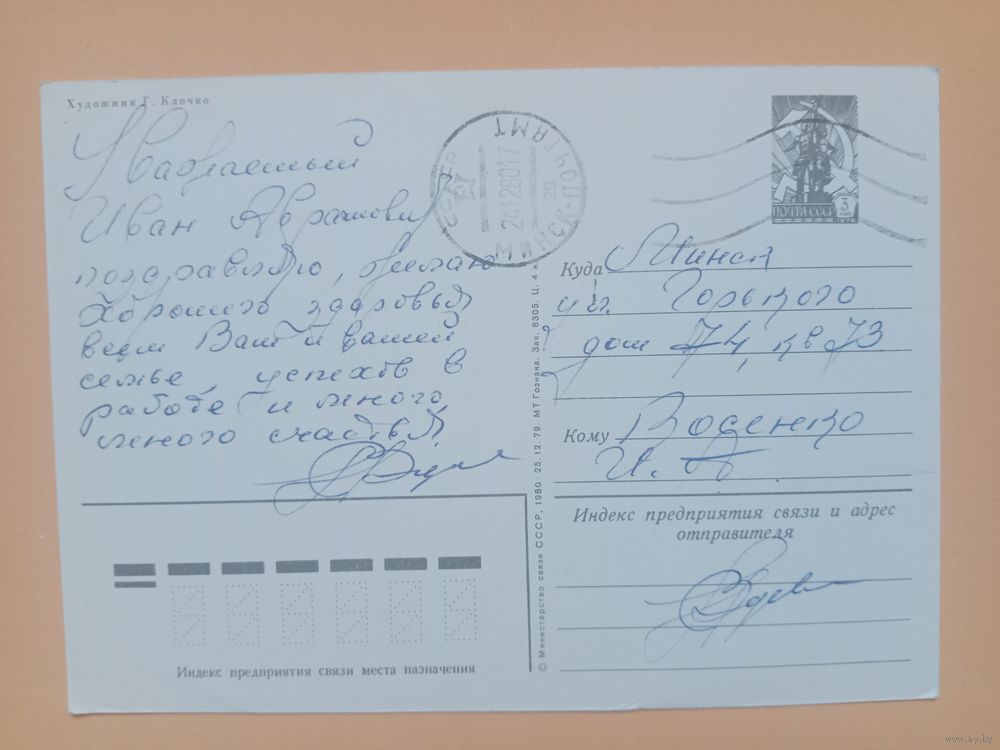 Художник Г. Клочко
Уважаемый
Иван Абрамович
поздравляю, желаю
хорошего здоровья
всем Вам и вашей
семье, успехов в
работе и много
много счастья.
СССР
МИНСК-ПОЧТАМТ
24128017
20
ПОЧТА СССР
3
1976
Куда Минск
ул. Горького
дом 74, кв 73
Кому Воденко
И. А.
Индекс предприятия связи и адрес
отправителя
Индекс предприятия связи места назначения
© Министерство связи СССР, 1980 25. 12. 79. МТ Гознака. Зак. 8305. Ц. 4 к.
www.ay.by